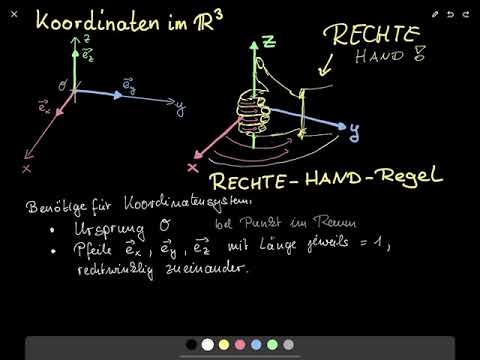 Koordinaten im ℝ³
RECHTE
HAND!
z
e⃗z
O
e⃗y
e⃗x
y
x
z
y
x
RECHTE-HAND-Regel
Benötige für Koordinatensystem:
• Ursprung O bel Punkt im Raum
• Pfeile e⃗x, e⃗y, e⃗z mit Länge jeweils = 1,
rechtwinklig zueinander.